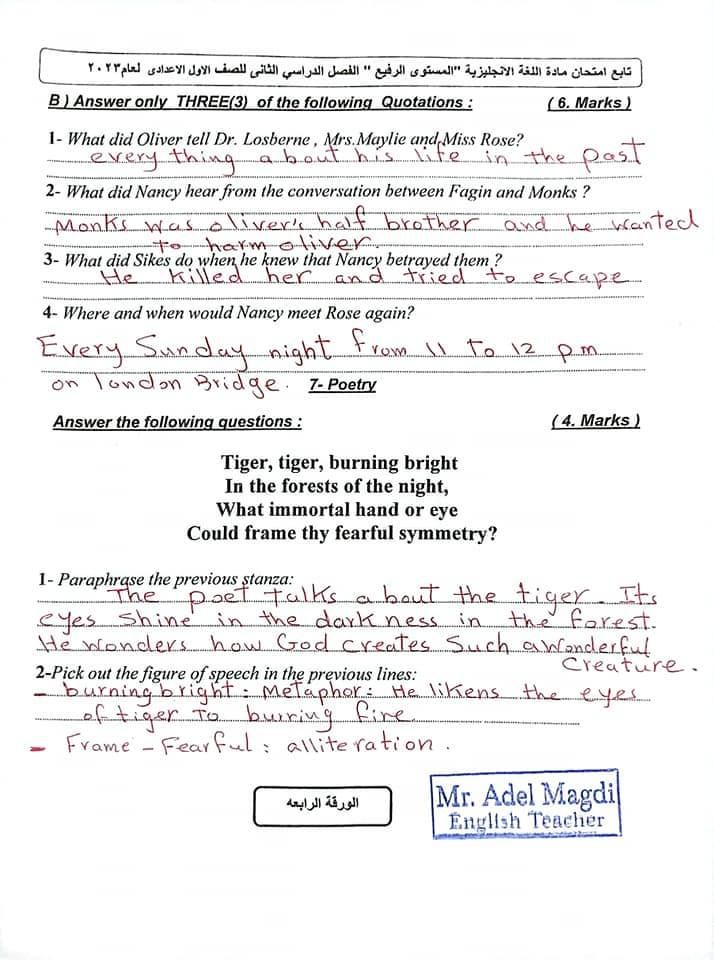 تابع امتحان مادة اللغة الانجليزية "المستوى الرفيع" الفصل الدراسي الثانى للصف الاول الاعدادى لعام ٢٠٢٣
B ) Answer only THREE(3) of the following Quotations : ( 6. Marks )
1- What did Oliver tell Dr. Losberne , Mrs.Maylie and Miss Rose?
every thing about his life in the past
2- What did Nancy hear from the conversation between Fagin and Monks ?
Monks was oliver's half brother and he wanted
to harm oliver.
3- What did Sikes do when he knew that Nancy betrayed them ?
He killed her and tried to escape
4- Where and when would Nancy meet Rose again?
Every Sunday night from 11 to 12 pm
on london Bridge. 7- Poetry
Answer the following questions : ( 4. Marks )
Tiger, tiger, burning bright
In the forests of the night,
What immortal hand or eye
Could frame thy fearful symmetry?
1- Paraphrase the previous stanza:
The poet talks about the tiger. Its
eyes shine in the darkness in the forest.
He wonders how God creates Such a wonderful
Creature.
2-Pick out the figure of speech in the previous lines:
- burning bright : Metaphor : He likens the eyes
of tiger to burring fire
- Frame - Fearful : alliteration .
الورقة الرابعه
Mr. Adel Magdi
English Teacher